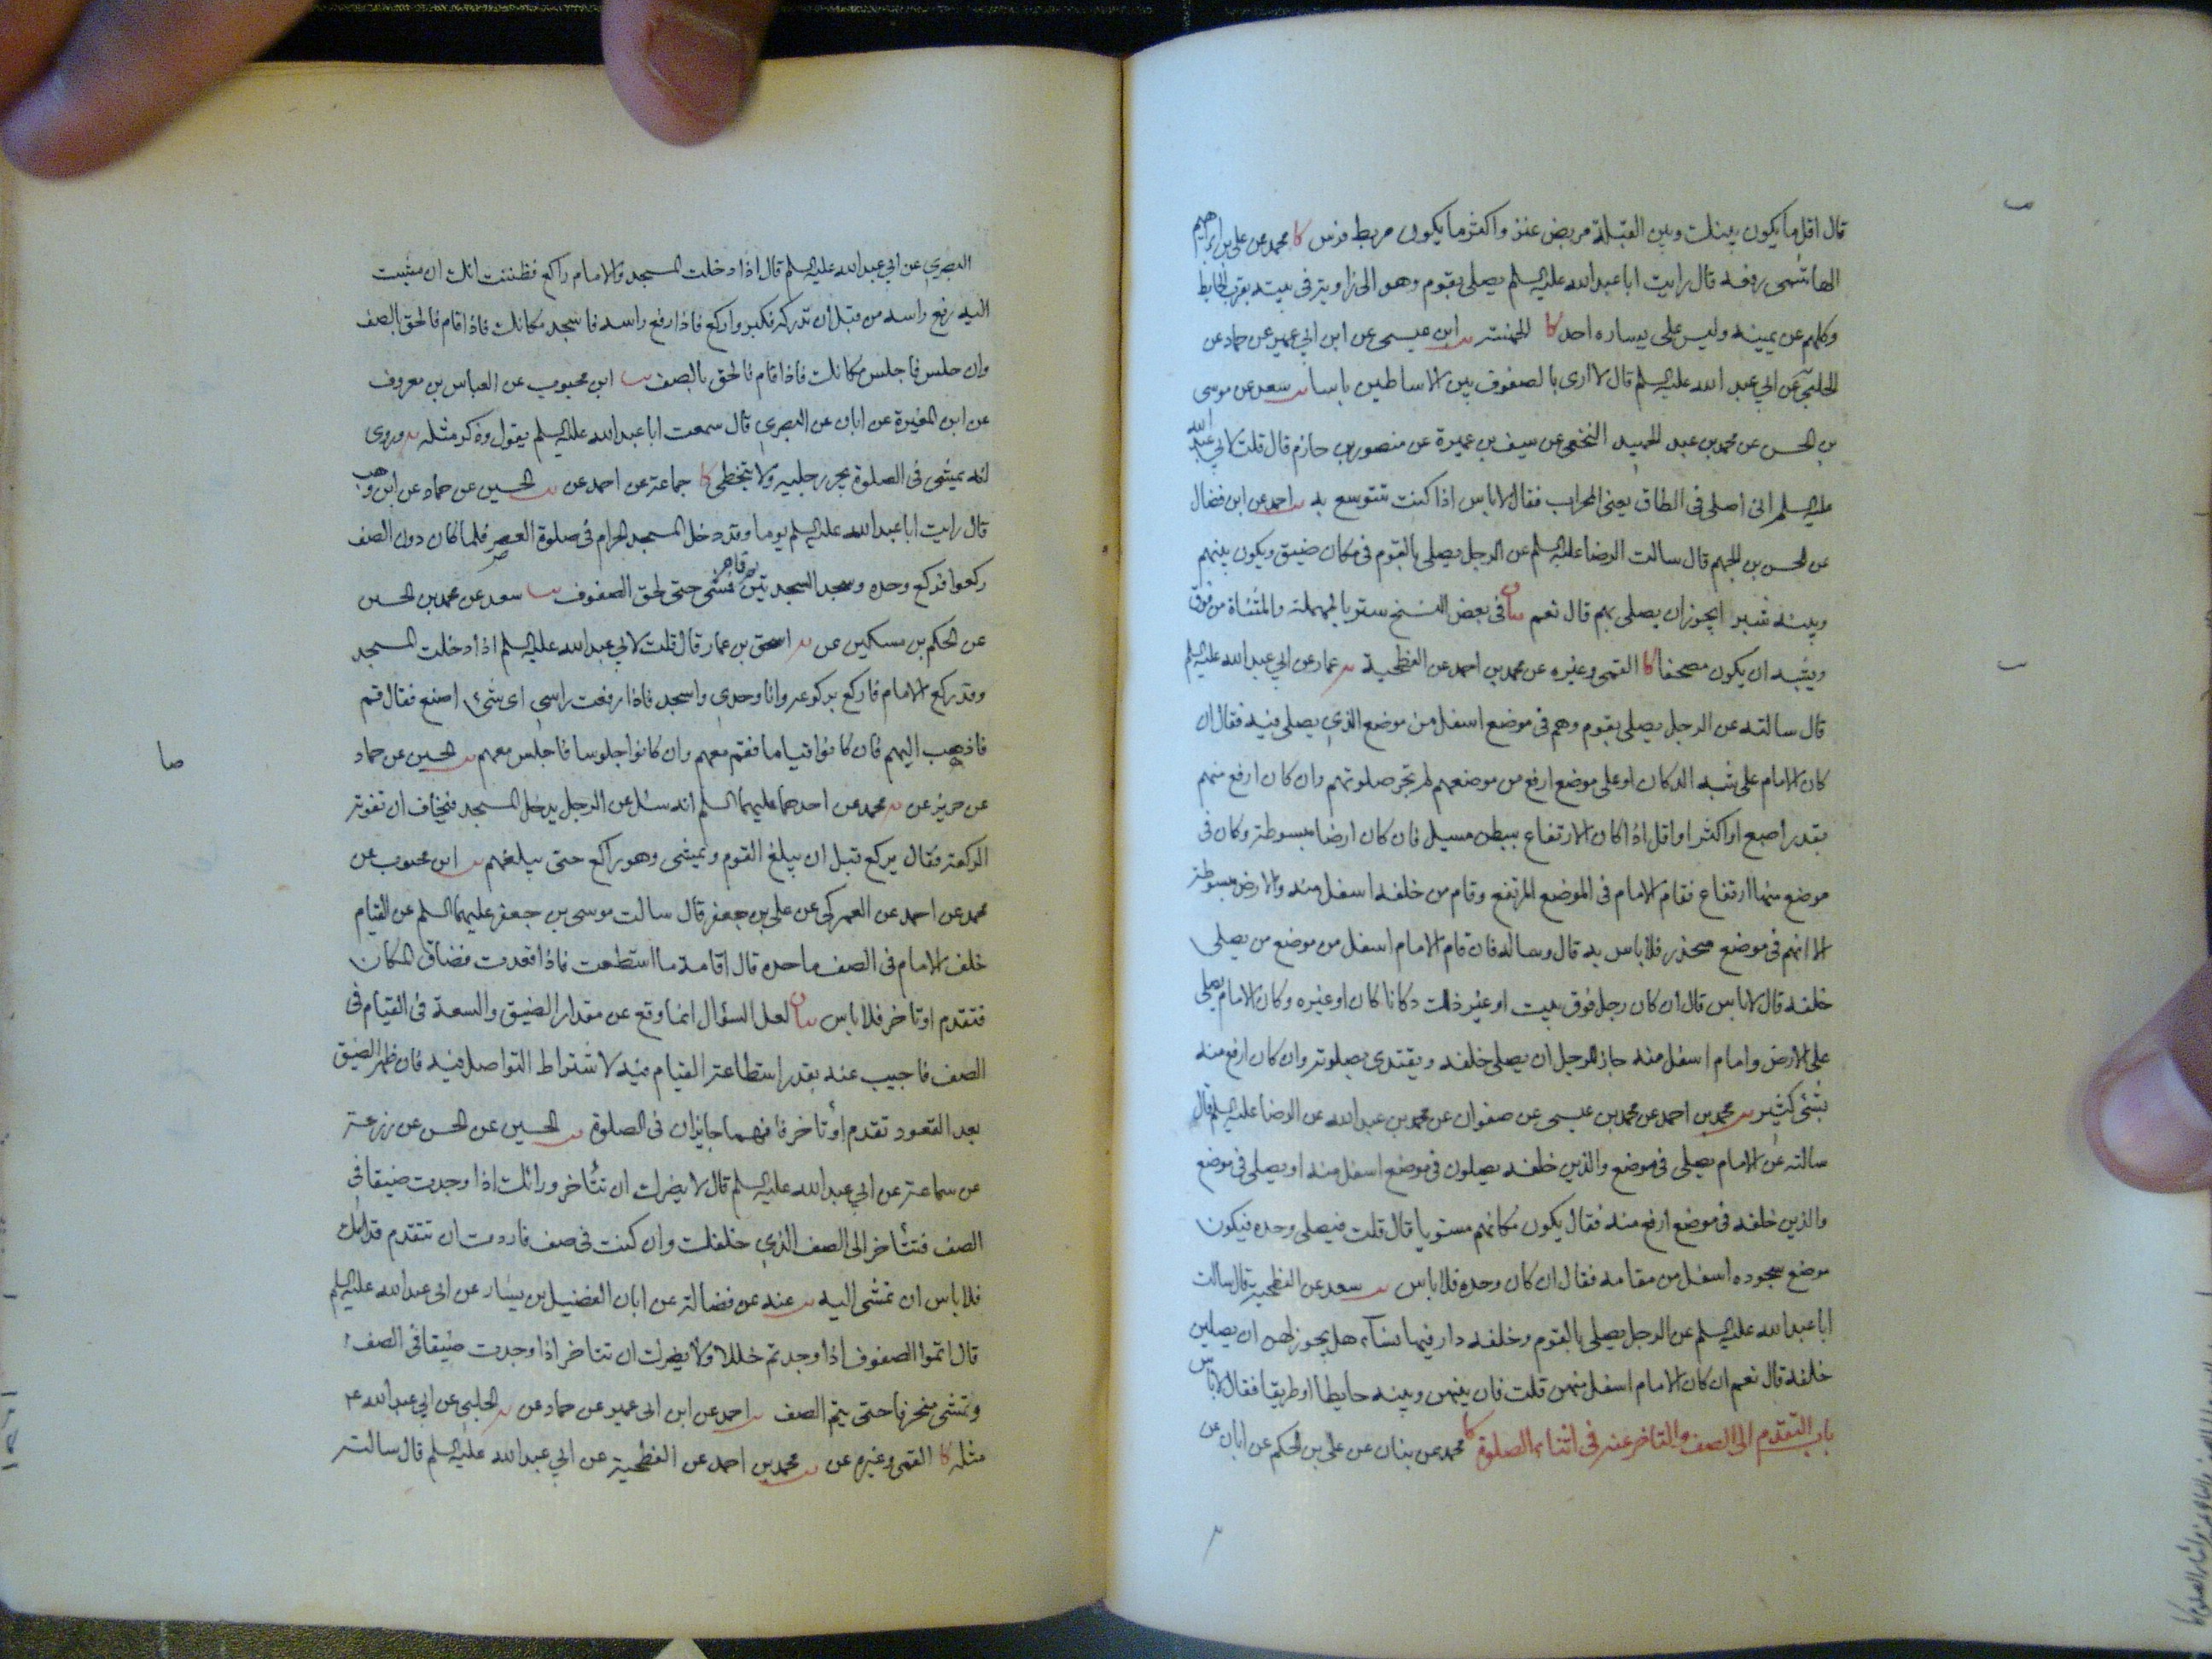 قال اقل ما يكون بينك وبين القبلة مربض عنز واكثر ما يكون مربط فرس كا محمد عن علي بن ابراهيم
الهاشمي رفعه قال رايت ابا عبد الله عليه السلم يصلي بقوم وهو الى زاوية في بيته بقرب الحايط
وكلهم عن يمينه وليس على يساره احد كا الخمسة يب ابن عيسى عن ابن ابي عمير عن حماد عن
الحلبي عن ابي عبد الله عليه السلم قال لا ارى بالصفوف بين الاساطين باسا يب سعد عن موسى
بن الحسن عن محمد بن عبد الحميد النخعي عن سيف بن عميرة عن منصور بن حازم قال قلت لابي عبد الله
عليه السلم اني اصلي في الطاق يعني المحراب فقال لا باس اذا كنت تتوسع به يب احمد عن ابن فضال
عن الحسن بن الجهم قال سالت الرضا عليه السلم عن الرجل يصلي بالقوم في مكان ضيق ويكون بينهم
وبينه شبر ايجوز ان يصلي بهم قال نعم بيان في بعض النسخ ستر بالمهملة والمثناة من فوق
ويشبه ان يكون مصحفا كا القمي وغيره عن محمد بن احمد عن الفطحية يب عمار عن ابي عبد الله عليه السلم
قال سالته عن الرجل يصلي بقوم وهم في موضع اسفل من موضع الذي يصلي فيه فقال ان
كان الامام على شبه الدكان او على موضع ارفع من موضعهم لم تجز صلوتهم وان كان ارفع منهم
بقدر اصبع او اكثر او اقل اذا كان الارتفاع ببطن مسيل فان كان ارضا مبسوطة وكان في
موضع منها ارتفاع فقام الامام في الموضع المرتفع وقام من خلفه اسفل منه والارض مبسوطة
الا انهم في موضع منحدر فلا باس به قال وساله فان قام الامام اسفل من موضع من يصلي
خلفه قال لا باس قال ان كان رجل فوق بيت او غير ذلك دكانا كان او غيره وكان الامام يصلي
على الارض وامام اسفل منه جاز للرجل ان يصلي خلفه ويقتدي بصلوته وان كان ارفع منه
بشئ كثير يب محمد بن احمد عن محمد بن عيسى عن صفوان عن محمد بن عبد الله عن الرضا عليه السلم قال
سالته عن الامام يصلي في موضع والذين خلفه يصلون في موضع اسفل منه او يصلي في موضع
والذين خلفه في موضع ارفع منه فقال يكون مكانهم مستويا قال قلت فيصلي وحده فيكون
موضع سجوده اسفل من مقامه فقال ان كان وحده فلا باس يب سعد عن الفطحية قال سالت
ابا عبد الله عليه السلم عن الرجل يصلي بالقوم وخلفه دار فيها نساء هل يجوز لهن ان يصلين
خلفه قال نعم ان كان الامام اسفل منهن قلت فان بينهن وبينه حايطا او طريقا فقال لا باس
باب التقدم الى الصف والتاخر عنه في اثناء الصلوة كا محمد عن بنان عن علي بن الحكم عن ابان عن
البصري عن ابي عبد الله عليه السلم قال اذا دخلت المسجد والامام راكع فظننت انك ان مشيت
اليه رفع راسه من قبل ان تدركه فكبر واركع فاذا رفع راسه فاسجد مكانك فاذا قام فالحق بالصف
وان جلس فاجلس مكانك فاذا قام فالحق بالصف يب ابن محبوب عن العباس بن معروف
عن ابن المغيرة عن ابان عن البصري قال سمعت ابا عبد الله عليه السلم يقول وذكر مثله يه وروى
انه يمشي في الصلوة يجر رجليه ولا يتخطى كا جماعة عن احمد عن يب الحسين عن حماد عن ابن وهب
قال رايت ابا عبد الله عليه السلم يوما وقد دخل المسجد الحرام في صلوة العصر فلما كان دون الصف
ركعوا فركع وحده وسجد السجدتين ثم قام فمشى حتى لحق الصفوف يب سعد عن محمد بن الحسين
عن الحكم بن مسكين عن يه اسحق بن عمار قال قلت لابي عبد الله عليه السلم اذا دخلت المسجد
وقد ركع الامام فاركع بركوعه وانا وحدي واسجد فاذا رفعت راسي اي شئ اصنع فقال قم
فاذهب اليهم فان كانوا قياما فقم معهم وان كانوا جلوسا فاجلس معهم يب الحسين عن حماد
صا
عن حريز عن يه محمد عن احدهما عليهما السلم انه سئل عن الرجل يدخل المسجد فيخاف ان تفوته
الركعة فقال يركع قبل ان يبلغ القوم ويمشي وهو راكع حتى يبلغهم يب ابن محبوب عن
محمد عن احمد عن العمركي عن علي بن جعفر قال سالت موسى بن جعفر عليهما السلم عن القيام
خلف الامام في الصف ما حده قال اقامة ما استطعت فاذا قعدت فضاق المكان
فتقدم او تاخر فلا باس بيان لعل السؤال انما وقع عن مقدار الضيق والسعة في القيام في
الصف فاجيب عنه بقدر استطاعة القيام فيه لاشتراط التواصل فيه فان ظهر الضيق
بعد القعود تقدم او تاخر فانهما جايزان في الصلوة يب الحسين عن الحسن عن زرعة
عن سماعة عن ابي عبد الله عليه السلم قال لا يضرك ان تتأخر ورائك اذا وجدت ضيقا في
الصف فتتأخر الى الصف الذي خلفك وان كنت في صف فاردت ان تتقدم قدامك
فلا باس ان تمشي اليه يب عنه عن فضالة عن ابان الفضيل بن يسار عن ابي عبد الله عليه السلم
قال اتموا الصفوف اذا وجدتم خللا ولا يضرك ان تتاخر اذا وجدت ضيقا في الصف
وتمشي منحرفا حتى يتم الصف يب احمد عن ابن ابي عمير عن حماد عن يه الحلبي عن ابي عبد الله ع
مثله كا القمي وغيره عن يب محمد بن احمد عن الفطحية عن ابي عبد الله عليه السلم قال سالته